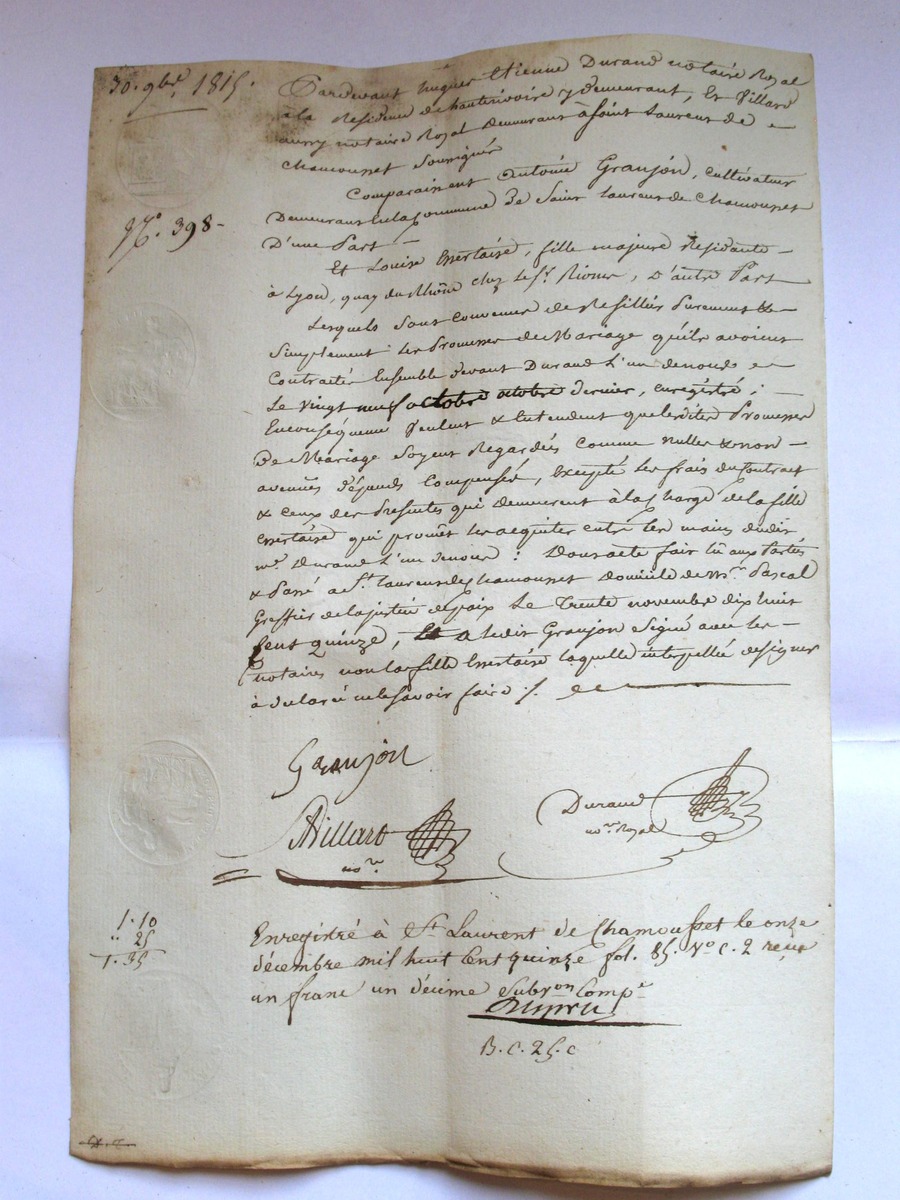 30. 9bre. 1815.
Pardevant hugues Etienne Durand notaire Royal
à la Residence de hauterivoire y demeurant, Et Villard
aussy notaire Royal demeurant à Saint Laurent de
Chamousset soussignés
N.º 398-
Comparaissent Antoine Granjon, cultivateur
Demeurant en la Commune De Saint Laurent de Chamousset
D'une Part -
Et Louise Essertaise, fille majeure Residante -
à Lyon, quay du Rhône chez Le Sr. , D'autre Part
Lesquels Sont Convenus de Resillier Purement &
Simplement les Promesses de Mariage qu'ils avoient
Contractés Ensemble devant Durand L'un de nous
Le Vingt neuf octobre octobre dernier, enregistré ;
Enconséquence Veulent & Entendent que lesdites Promesses
De Mariage Soyent Regardées Comme nulles & non -
avenuës dépends Compensés, Excepté les frais du Contract
& Ceux des Presentes qui demeurent à la Charge de la fille
Essertaise qui promêt les acquiter entre les mains dudit
me. Durand L'un denous : Dont acte fait lû aux Parties
& Passé a St. laurent de Chamousset Domicile de Mr. Pascal
Greffier de la justice de paix Le Trente novembre dix huit
Cent quinze, Et a ledit Granjon Signé avec les -
notaires non la fille Essertaise laquelle interpellée de signer
à déclaré ne le savoir faire ./.
Granjon
Villard
nore.
Durand
nore. Royal
1.10
" 25
1.35
Enregistré à St Laurent de Chamousset le onze
décembre mil huit Cent quinze fol. 85. Vo C. 2 reçu
un franc un décime Subvon Compse
B. c. 25. c